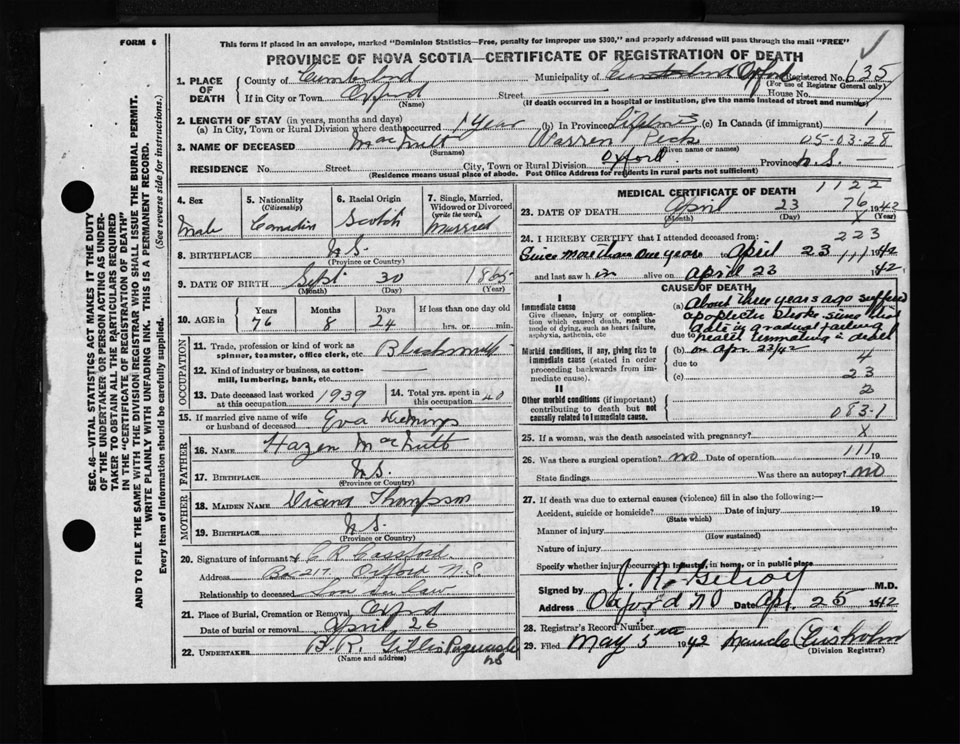 FORM 6
This form if placed in an envelope, marked "Dominion Statistics—Free, penalty for improper use $300," and properly addressed will pass through the mail "FREE"
PROVINCE OF NOVA SCOTIA—CERTIFICATE OF REGISTRATION OF DEATH
1. PLACE OF DEATH
County of Cumberland Municipality of Cumberland Oxford Registered No. 635
(For use of Registrar General only)
If in City or Town Oxford Street House No.
(Name) (If death occurred in a hospital or institution, give the name instead of street and number)
2. LENGTH OF STAY (in years, months and days)
(a) In City, Town or Rural Division where death occurred 1 Year (b) In Province Lifetime (c) In Canada (if immigrant) 1
3. NAME OF DECEASED MacNutt Warren 05-03-28
(Surname) (Given name or names)
RESIDENCE No. Street City, Town or Rural Division Oxford Province N.S.
(Residence means usual place of abode. Post Office Address for residents in rural parts not sufficient)
SEC. 46—VITAL STATISTICS ACT MAKES IT THE DUTY
OF THE UNDERTAKER OR PERSON ACTING AS UNDER-
TAKER TO OBTAIN ALL THE PARTICULARS REQUIRED
IN THE "CERTIFICATE OF REGISTRATION OF DEATH"
AND TO FILE THE SAME WITH THE DIVISION REGISTRAR WHO SHALL ISSUE THE BURIAL PERMIT.
WRITE PLAINLY WITH UNFADING INK. THIS IS A PERMANENT RECORD.
Every item of information should be carefully supplied. (See reverse side for instructions.)
4. Sex
Male
5. Nationality
(Citizenship)
Canadian
6. Racial Origin
Scotch
7. Single, Married, Widowed or Divorced
(write the word)
Married
8. BIRTHPLACE N.S.
(Province or Country)
9. DATE OF BIRTH Sept 30 1865
(Month) (Day) (Year)
10. AGE in Years Months Days If less than one day
76 8 24 hrs. or min.
OCCUPATION
11. Trade, profession or kind of work as spinner, teamster, office clerk, etc. Blacksmith
12. Kind of industry or business, as cotton-mill, lumbering, bank, etc.
13. Date deceased last worked at this occupation 1939
14. Total yrs. spent in this occupation 40
15. If married give name of wife or husband of deceased Eva
FATHER
16. NAME Hazen MacNutt
17. BIRTHPLACE N.S.
(Province or Country)
MOTHER
18. MAIDEN NAME Diana Thompson
19. BIRTHPLACE N.S.
(Province or Country)
20. Signature of informant C R
Address Box 217 Oxford N.S.
Relationship to deceased Son in law
21. Place of Burial, Cremation or Removal Oxford
Date of burial or removal April 26
22. UNDERTAKER B. R. Gillis Pugwash NS
(Name and address)
MEDICAL CERTIFICATE OF DEATH
1122
23. DATE OF DEATH April 23 76 1942
(Month) (Day) (Year)
223
24. I HEREBY CERTIFY that I attended deceased from:
Since more than one year to April 23 111 1942
and last saw him alive on April 23 1942
CAUSE OF DEATH
I
Immediate cause
Give disease, injury or complication which caused death, not the mode of dying, such as heart failure, asphyxia, asthenia, etc
(a) About three years ago suffered
apoplectic stroke since that
date is gradual failing
health terminating in death
Morbid conditions, if any, giving rise to immediate cause (stated in order proceeding backwards from immediate cause).
(b) on Apr. 23/42
due to 4
(c) 23
II
Other morbid conditions (if important) contributing to death but not causally related to immediate cause.
2
083-1
25. If a woman, was the death associated with pregnancy? X
26. Was there a surgical operation? no Date of operation 111 19
State findings Was there an autopsy? no
27. If death was due to external causes (violence) fill in also the following:—
Accident, suicide or homicide? Date of injury 19
(State which)
Manner of injury
(How sustained)
Nature of injury
Specify whether injury occurred in industry, in home, or in public place
Signed by J. M.D.
Address Oxford NS Date Apr. 25 1942
28. Registrar's Record Number
29. Filed May 5th 1942 Maude Chisholm
(Division Registrar)